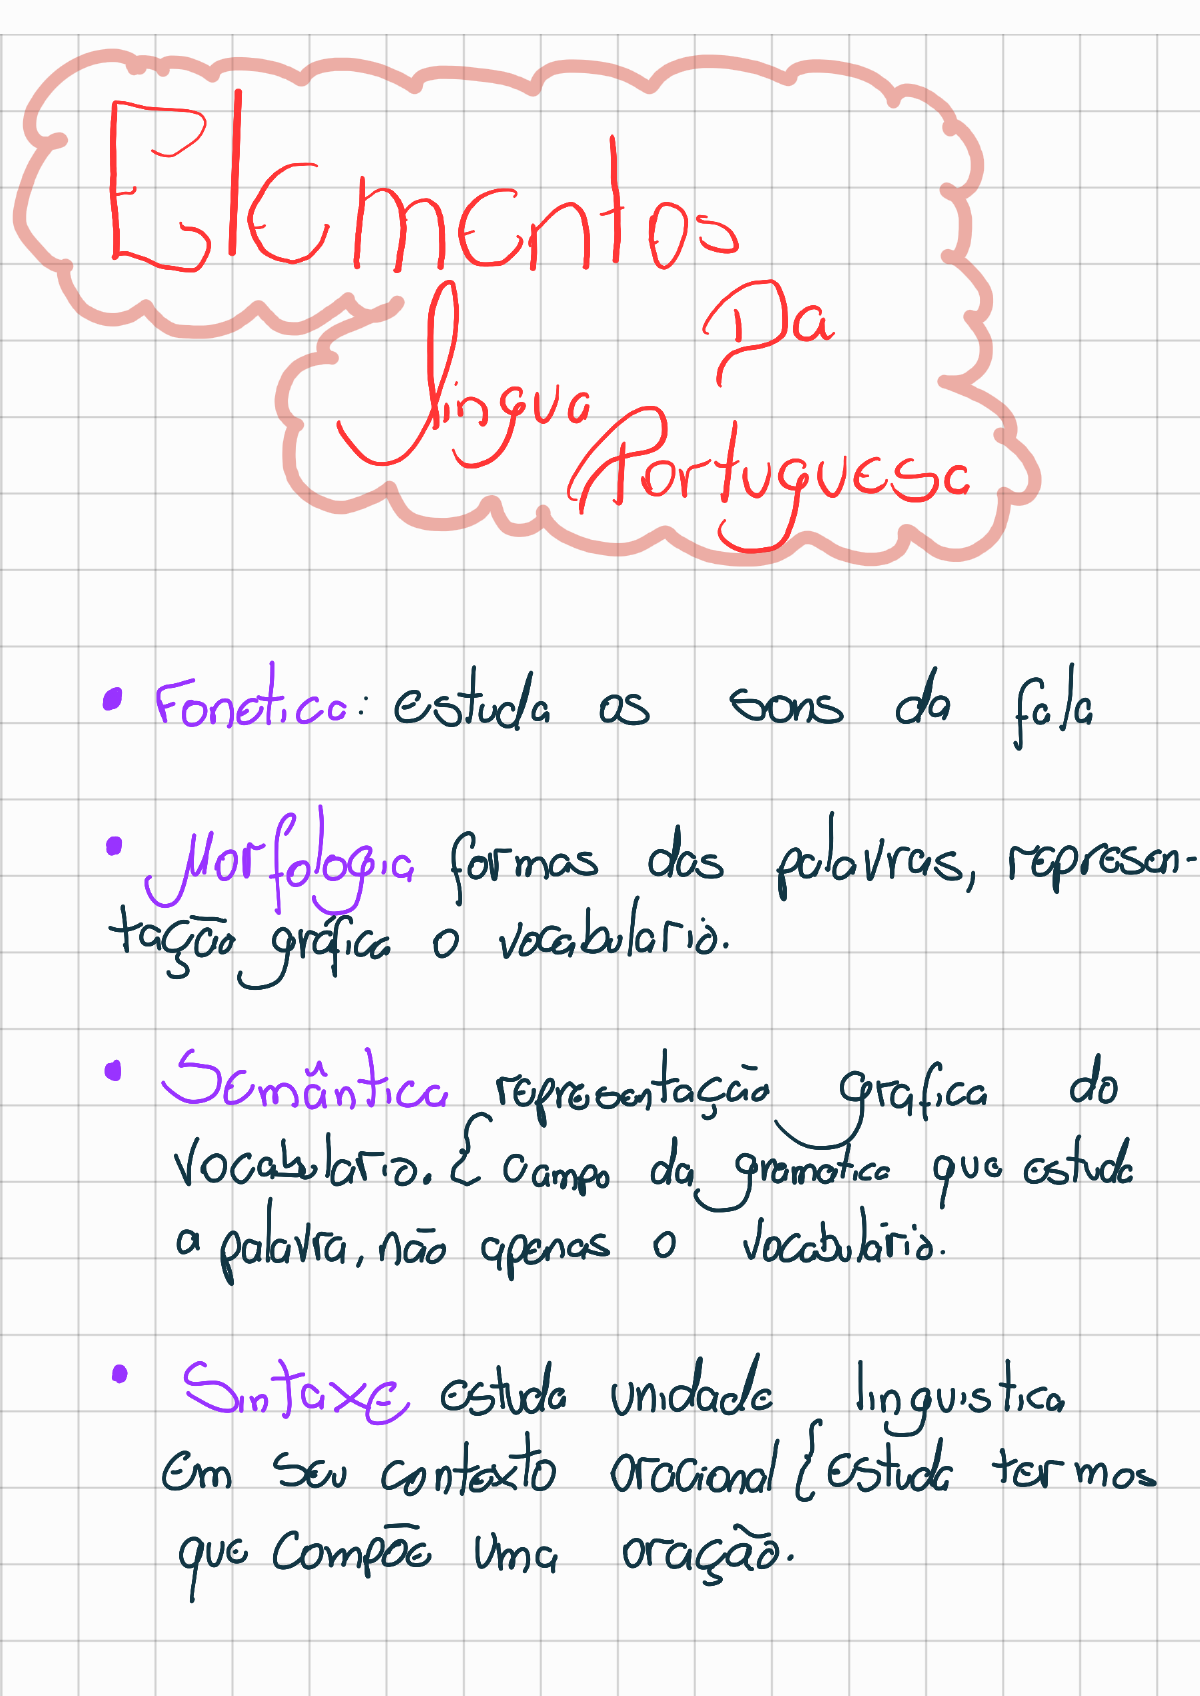 Elementos
Da
língua
Portuguesa
• Fonética: estuda os sons da fala
• Morfologia formas das palavras, represen-
tação gráfica o vocabulario.
• Semântica representação grafica do
vocabulario. { Campo da gramática que estuda
a palavra, não apenas o vocabulário.
• Sintaxe estuda unidade linguistica
em seu contexto oracional { estuda termos
que compõe uma oração.